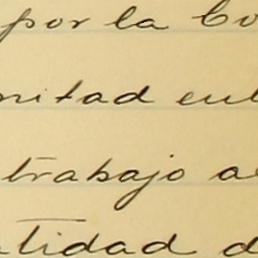 por la Co
nitad en
trabajo a
tidad d